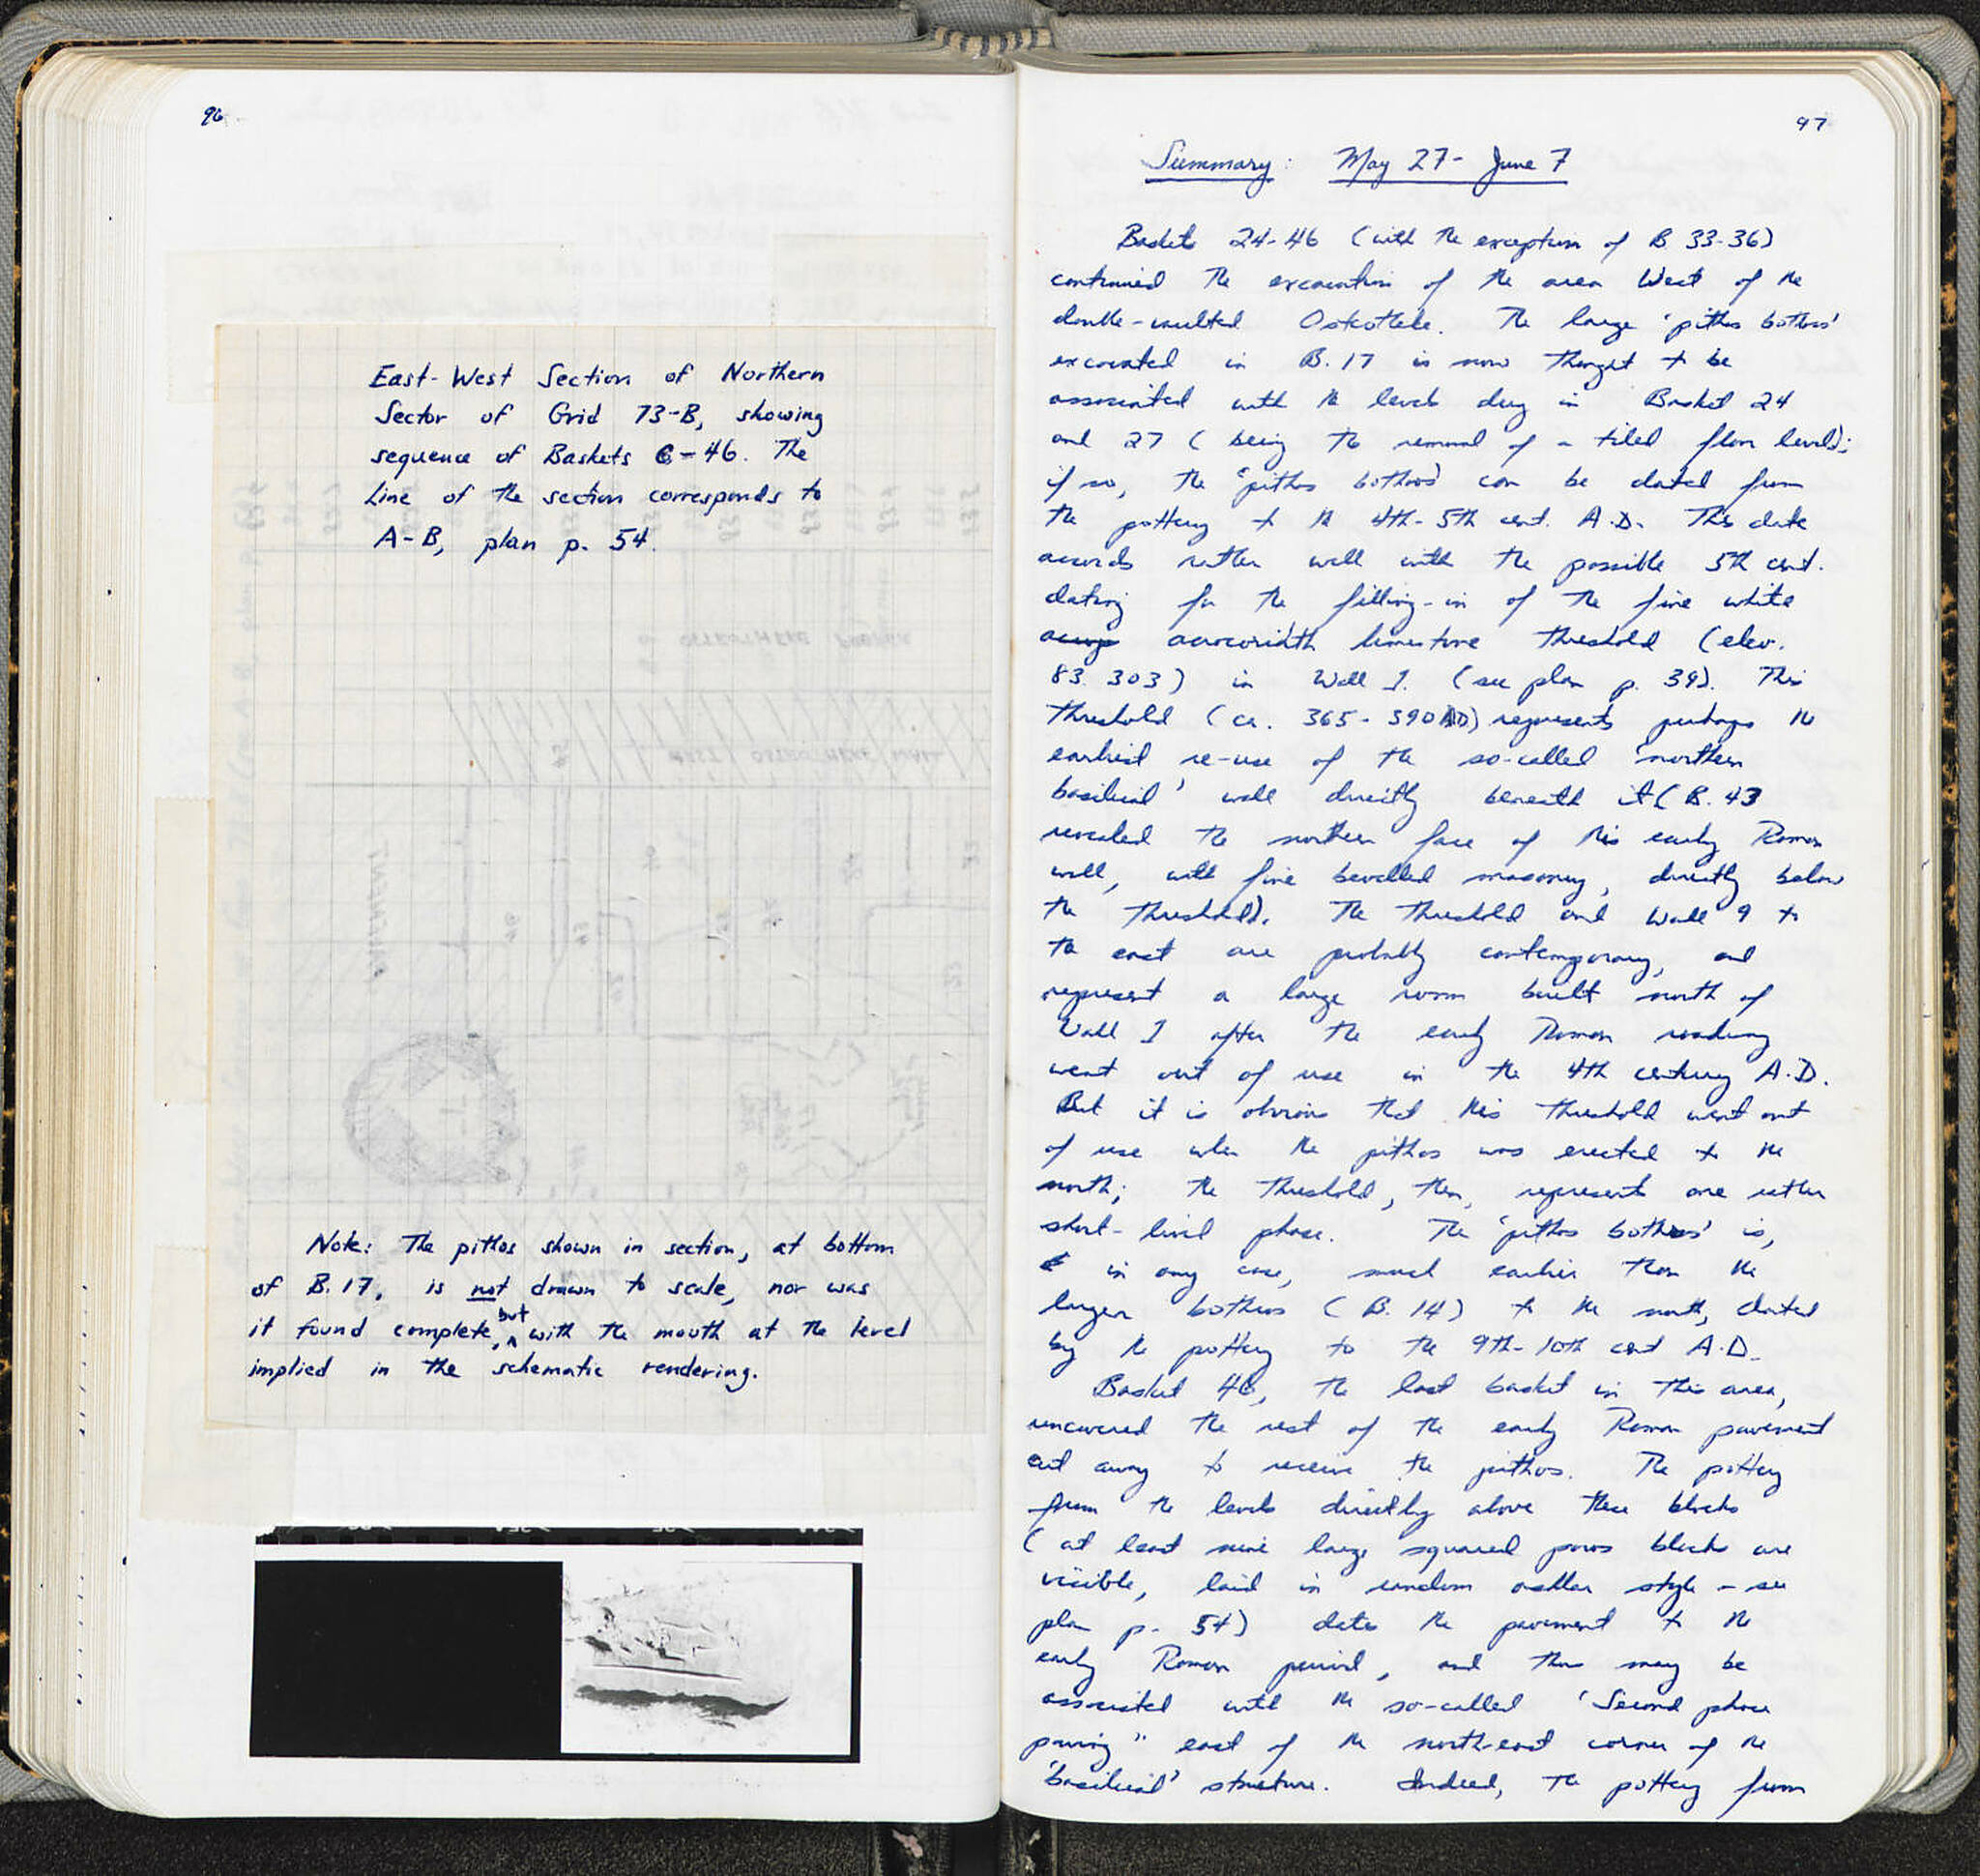 96
East-West Section of Northern
Sector of Grid 73-B, showing
sequence of Baskets 6-46. The
Line of the section corresponds to
A-B, plan p. 54.
Note: The pithos shown in section, at bottom
of B.17, is not drawn to scale, nor was
it found complete, but with the mouth at the level
implied in the schematic rendering.
97
Summary: May 27 - June 7
Baskets 24-46 (with the exception of B 33-36)
continued the excavation of the area West of the
double-vaulted Osteotheke. The large 'pithos bothros'
excavated in B.17 is now thought to be
associated with the levels dug in Basket 24
and 27 (being the removal of a tiled floor level);
if so, the 'pithos bothros' can be dated from
the pottery to the 4th-5th cent. A.D. This date
accords rather well with the possible 5th cent.
dating for the filling-in of the fine white
acrocorinth limestone threshold (elev.
83.303) in Wall 1. (see plan p. 39). This
threshold (ca. 365-390 AD) represents perhaps the
earliest re-use of the so-called 'northern
basilical' wall directly beneath it (B. 43
revealed the northern face of this early Roman
wall, with fine bevelled masonry, directly below
the threshold). The threshold and Wall 9 to
the east are probably contemporary, and
represent a large room built north of
Wall 1 after the early Roman roadway
went out of use in the 4th century A.D.
But it is obvious that this threshold went out
of use when the pithos was erected to the
north; the threshold, then, represents one rather
short-lived phase. The 'pithos bothros' is,
in any case, much earlier than the
larger bothros (B. 14) to the north, dated
by the pottery to the 9th-10th cent A.D.
Basket 46, the last basket in this area,
uncovered the rest of the early Roman pavement
cut away to receive the pithos. The pottery
from the levels directly above these blocks
(at least nine large squared poros blocks are
visible, laid in random ashlar style - see
plan p. 54) dates the pavement to the
early Roman period, and thus may be
associated with the so-called 'Second phase
paving" east of the north-east corner of the
'basilical' structure. Indeed, the pottery from